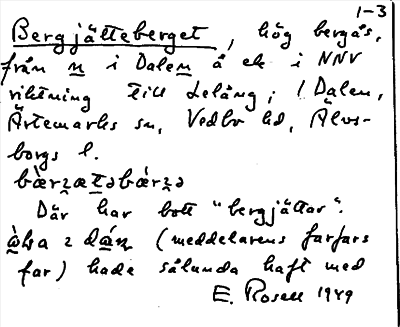 1-3
Bergjätteberget, hög bergås,
från n i Dalen å ek i NNV
riktning till Lelång, i Dalen,
Ärtemarks sn, Vedbo hd, Älvs-
borgs l.
Där har bott "bergjättar".
(meddelarens farfars
far) hade sålunda haft med
E. Rosell 1949